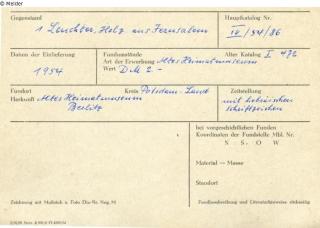 © Melder
Gegenstand
1 Leuchter, Holz aus Jerusalem
Hauptkatalog Nr.
IV/54/86
Datum der Einlieferung
1954
Fundumstände
Art der Erwerbung Altes Heimatmuseum
Wert DM 2.-
Alter Katalog I 472
Fundort
Kreis Potsdam-Land
Herkunft Altes Heimatmuseum
Beelitz
Zeitstellung
mit hebräischen
Schriftzeichen
bei vorgeschichtlichen Funden
Koordinaten der Fundstelle Mbl. Nr.
N - S - O - W
Material — Masse
Standort
Zeichnung mit Maßstab u. Foto Dia-Nr. Neg. Nr.
Fundbeschreibung und Literaturhinweise rückseitig